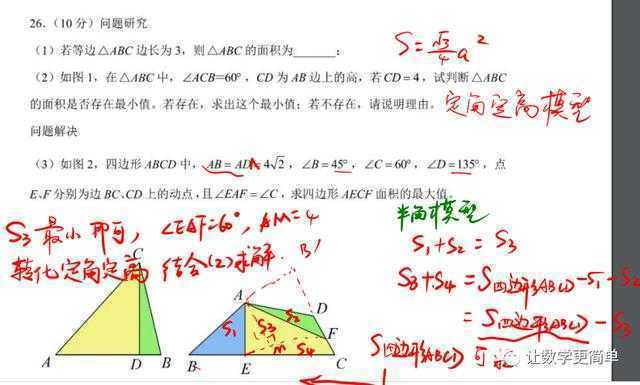 26.（10分）问题研究
（1）若等边△ABC边长为3，则△ABC的面积为______；
S=√3/4 a²
（2）如图1，在△ABC中，∠ACB=60°，CD为AB边上的高，若CD=4，试判断△ABC
的面积是否存在最小值。若存在，求出这个最小值；若不存在，请说明理由。
定角定高模型
问题解决
（3）如图2，四边形ABCD中，AB=AD=4√2，∠B=45°，∠C=60°，∠D=135°，点
E、F分别为边BC、CD上的动点，且∠EAF=∠C，求四边形AECF面积的最大值。
半角模型
S₃最小即可，∠EAF=60°，AM=4
转化定角定高 结合(2)求解.
S₁+S₂=S₃
S₃+S₄=S四边形ABCD-S₁-S₂
=S四边形ABCD-S₃
S四边形ABCD可
C
A D B
B'
A
D
F
B E C
S₁
S₂
S₃
S₄
M
让数学更简单